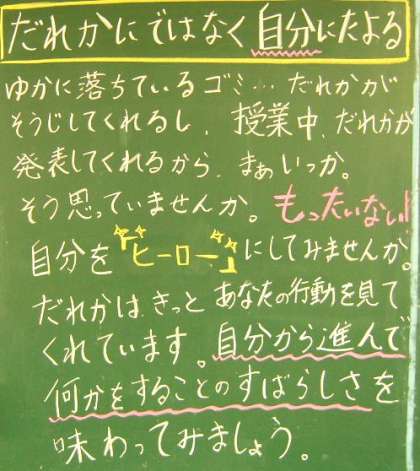 だれかにではなく自分にたよる
ゆかに落ちているゴミ…だれかが
そうじしてくれるし、授業中、だれかが
発表してくれるから、まぁいっか。
そう思っていませんか。もったいない!
自分を『ヒーロー』にしてみませんか。
だれかは、きっとあなたの行動を見て
くれています。自分から進んで
何かをすることのすばらしさを
味わってみましょう。